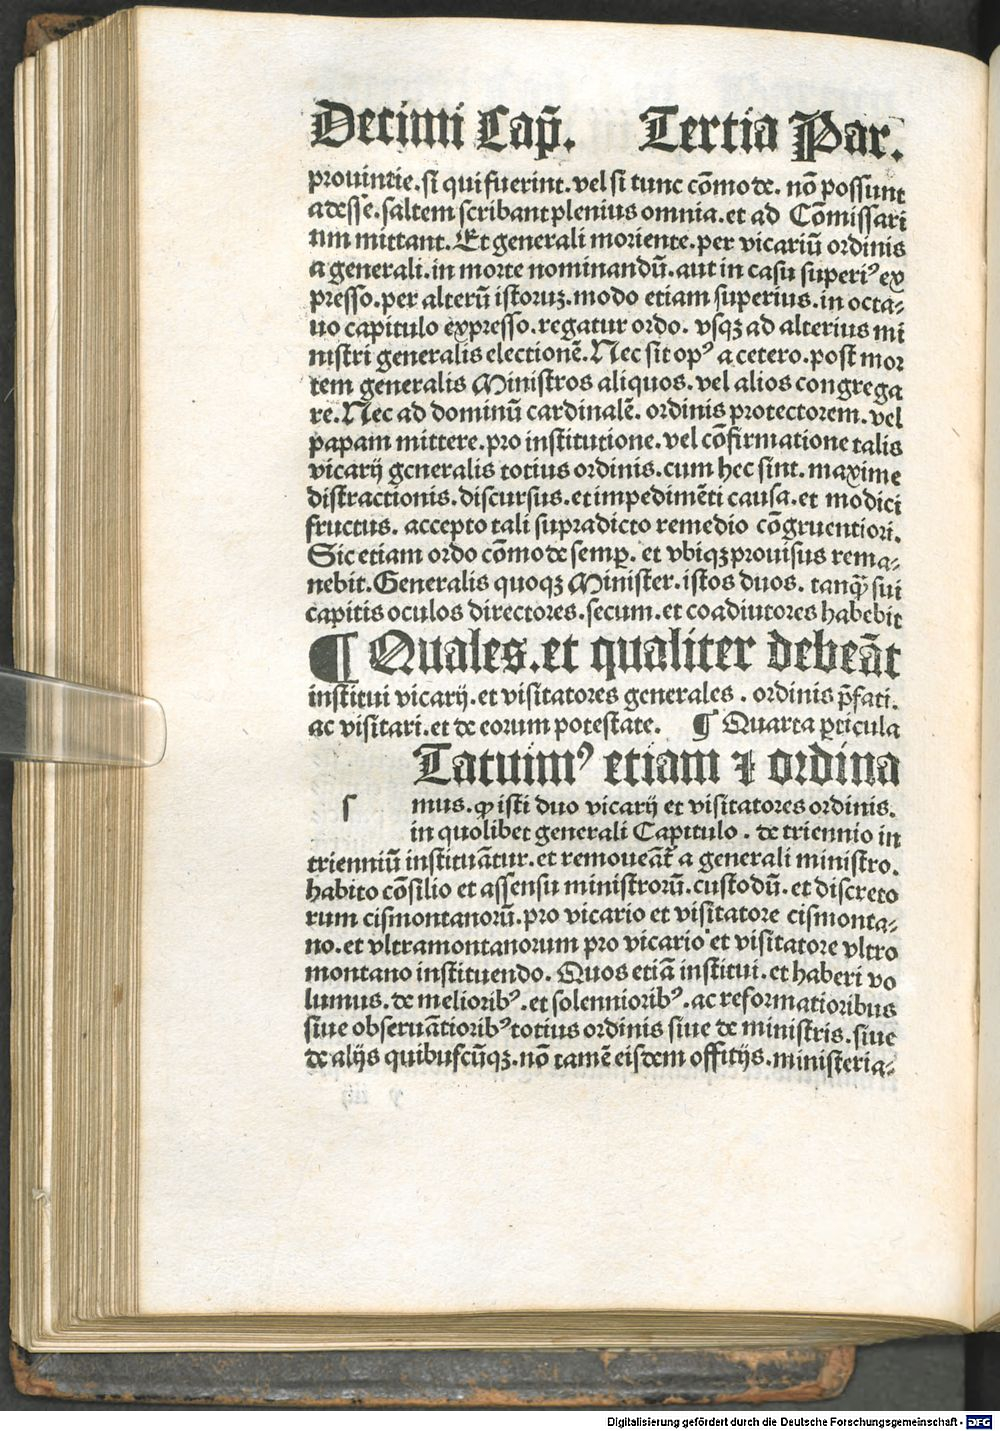 Decimi Cap̃. Tertia Par.
prouintie. si qui fuerint. vel si tunc cōmode. nō possunt
adesse. saltem scribant plenius omnia. et ad Cōmissari
um mittant. Et generali moriente. per vicariū ordinis
a generali. in morte nominandū. aut in casu superiꝰ ex
presso. per alterū istoruꝫ. modo etiam superius. in octa⸗
uo capitulo expresso. regatur ordo. vsqꝫ ad alterius mi
nistri generalis electionē. Nec sit opꝰ a cetero. post mor
tem generalis Ministros aliquos. vel alios congrega
re. Nec ad dominū cardinalē. ordinis protectorem. vel
papam mittere. pro institutione. vel cōfirmatione talis
vicarij generalis totius ordinis. cum hec sint. maxime
distractionis. discursus. et impedimēti causa. et modici
fructus. accepto tali supradicto remedio cōgruentiori.
Sic etiam ordo cōmode semꝑ. et vbiqꝫ prouisus rema⸗
nebit. Generalis quoqꝫ Minister. istos duos. tanꝗ̃ sui
capitis oculos directores. secum. et coadiutores habebit
¶ Quales. et qualiter debeāt
institui vicarij. et visitatores generales. ordinis p̄fati.
ac visitari. et de eorum potestate. ¶ Quarta ꝑticula
Tatuimꝰ etiam ⁊ ordina
s mus. ꝙ isti duo vicarij et visitatores ordinis.
in quolibet generali Capitulo. de triennio in
trienniū instituātur. et remoueāt̃ a generali ministro.
habito cōsilio et assensu ministrorū. custodū. et discreto
rum cismontanorū. pro vicario et visitatore cismonta⸗
no. et vltramontanorum pro vicario et visitatore vltro
montano instituendo. Quos etiā institui. et haberi vo
lumus. de melioribꝰ. et solennioribꝰ. ac reformatioribus
siue obseruātioribꝰ totius ordinis siue de ministris. siue
de alijs quibuscūqꝫ. nō tamē eisdem offitijs. ministeria⸗
Digitalisierung gefördert durch die Deutsche Forschungsgemeinschaft - DFG